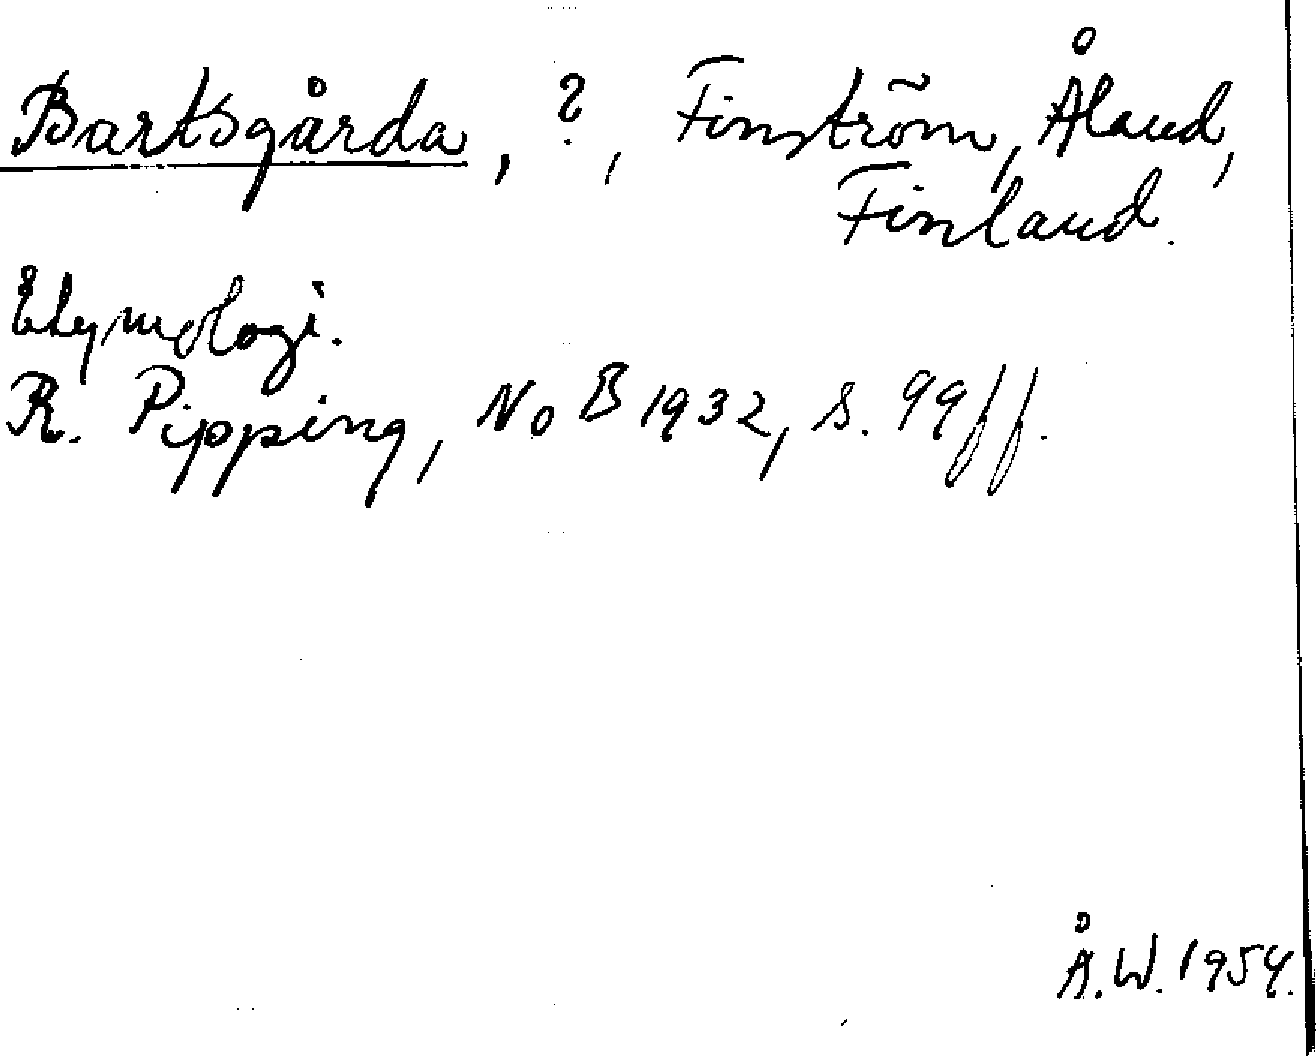 Bartsgårda, ?, Finström, Åland,
Finland.
Etymologi.
R. Pipping, NoB 1932, s. 99ff.
Å.W. 1954.